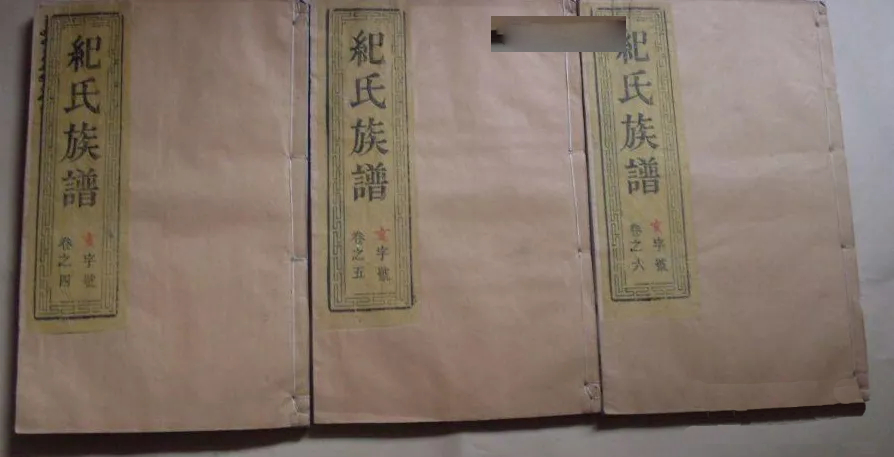 紀氏族譜
亥字號
卷之四
紀氏族譜
亥字號
卷之五
紀氏族譜
亥字號
卷之六